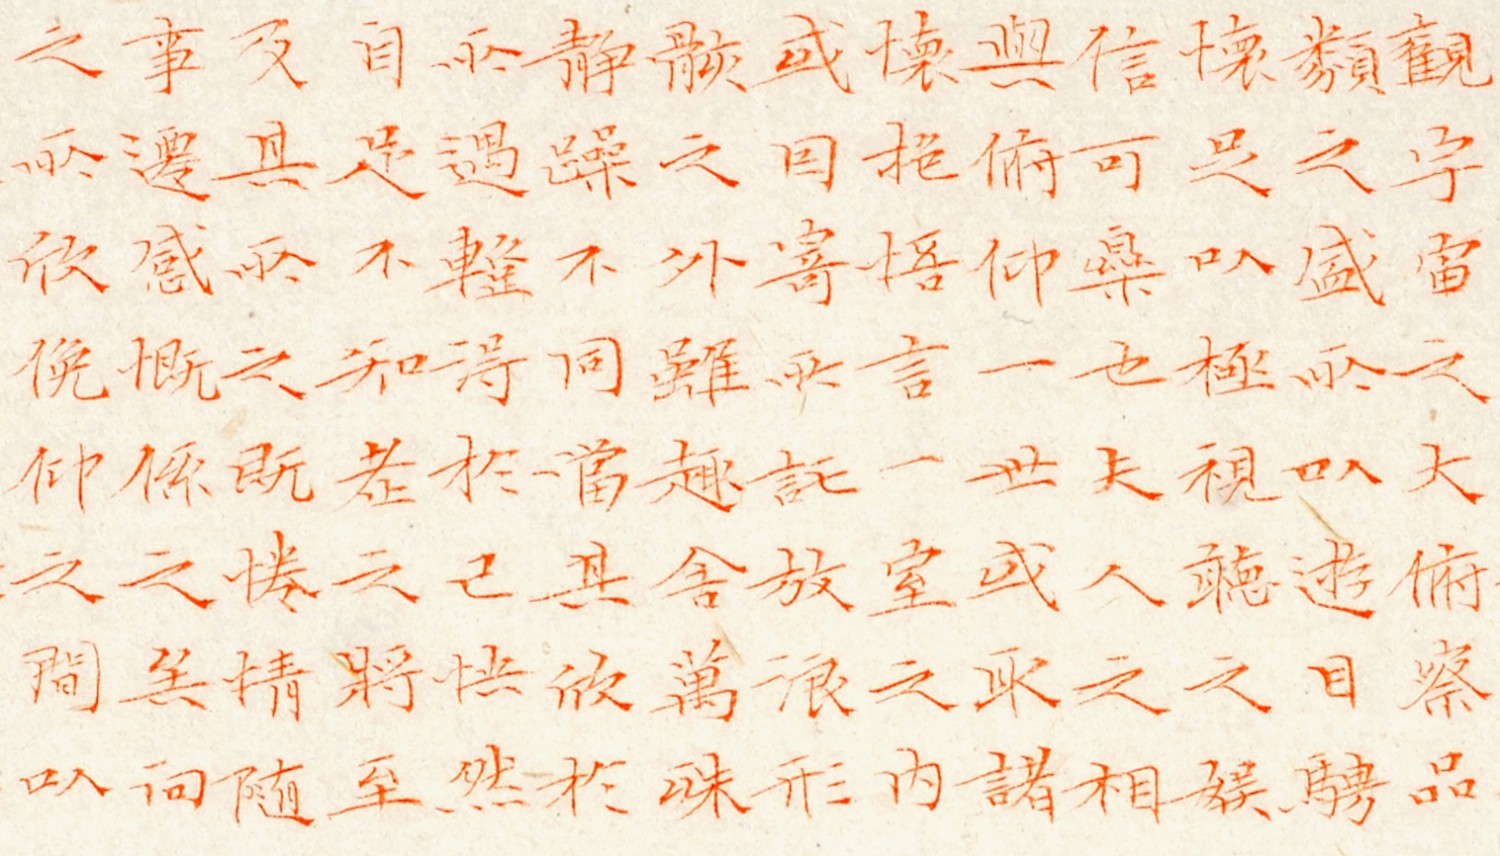 觀宇宙之大俯察品
類之盛所以遊目騁
懷足以極視聽之娛
信可樂也夫人之相
與俯仰一世或取諸
懷抱悟言一室之内
或因寄所託放浪形
骸之外雖趣舍萬殊
静躁不同當其欣於
所遇暫得於己怏然
自足不知老之將至
及其所之既惓情随
事遷感慨係之矣向
之所欣俛仰之間以